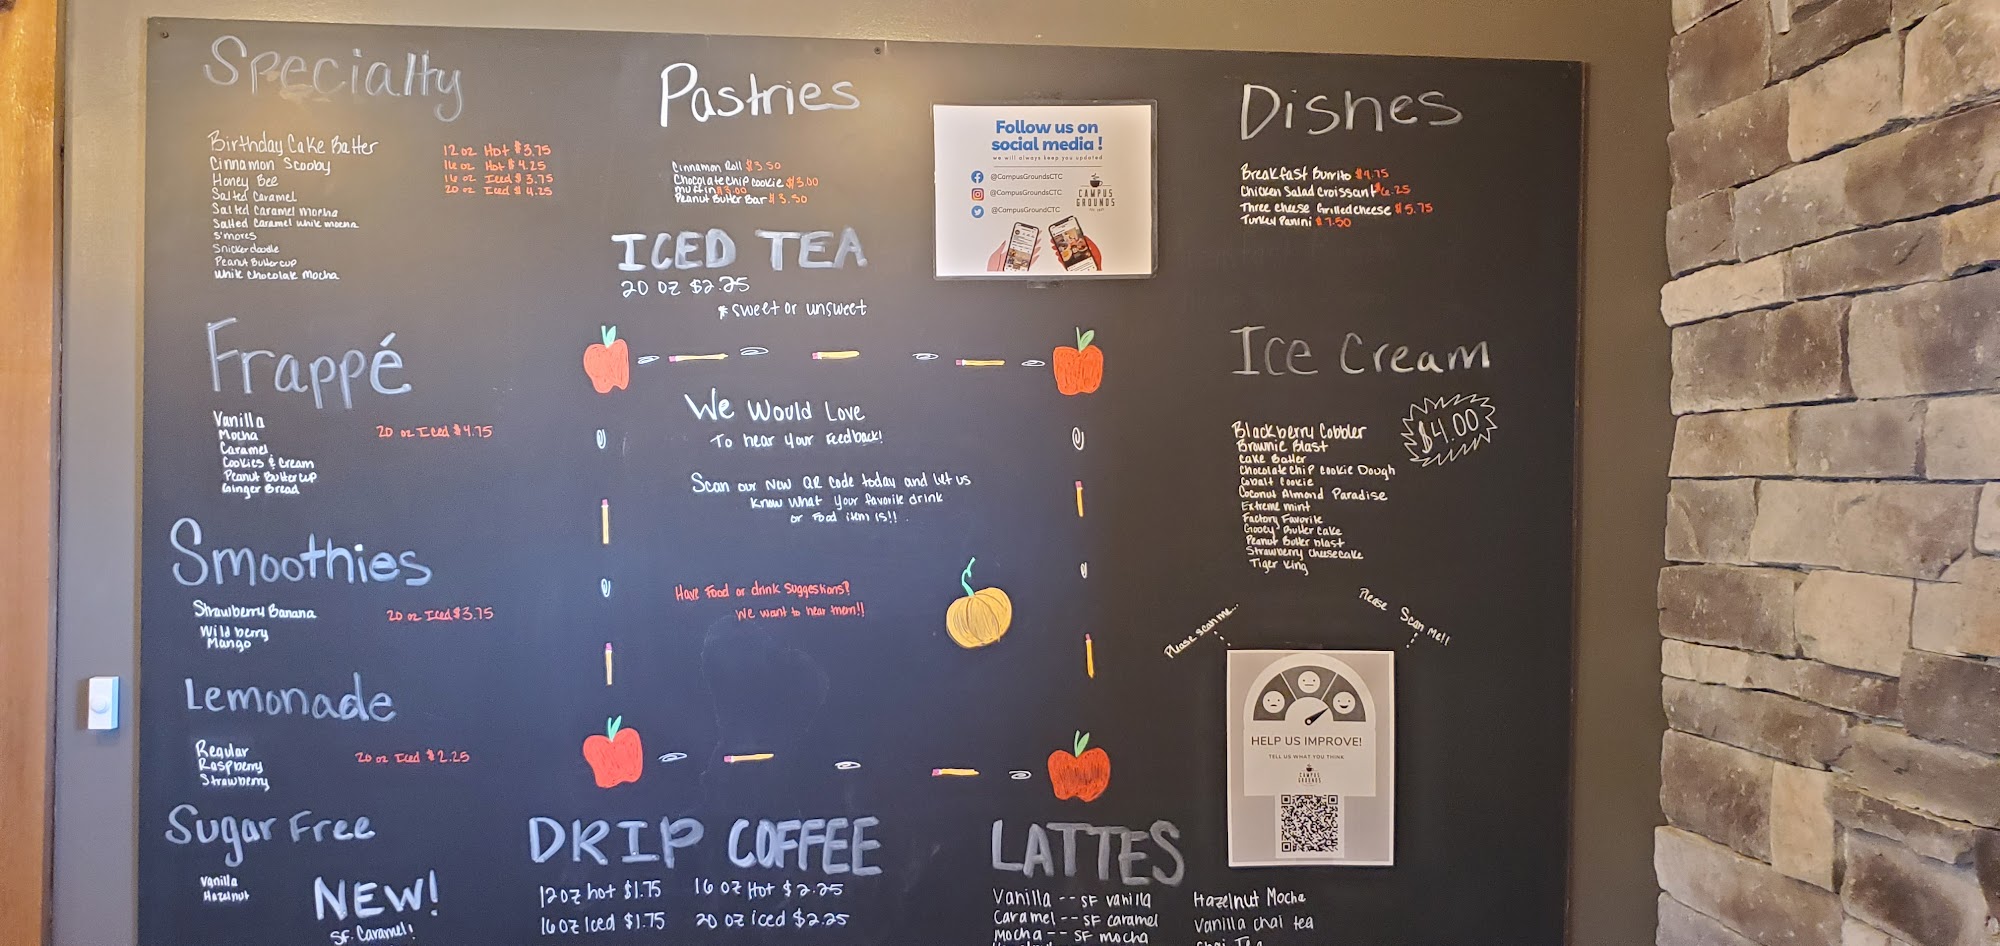 Specialty
Birthday Cake Batter
Cinnamon Scooby
Honey Bee
Salted Caramel
Salted Caramel Mocha
Salted Caramel White mocha
S'mores
Snickerdoodle
Peanut Butter cup
White Chocolate Mocha
12 oz Hot $3.75
16 oz Hot $4.25
16 oz Iced $3.75
20 oz Iced $4.25
Frappé
Vanilla
Mocha
Caramel
Cookies & Cream
Peanut Butter cup
Ginger Bread
20 oz Iced $4.75
Smoothies
Strawberry Banana
Wild berry
Mango
20 oz Iced $3.75
Lemonade
Regular
Raspberry
Strawberry
20 oz Iced $2.25
Sugar Free
Vanilla
Hazelnut
NEW!
SF. Caramel!
Pastries
Cinnamon Roll $3.50
Chocolate chip cookie $3.00
muffin $3.00
Peanut Butter Bar $3.50
ICED TEA
20 oz $2.25
*sweet or unsweet
Follow us on
social media !
we will always keep you updated
@CampusGroundsCTC
@CampusGroundsCTC
@CampusGroundCTC
CAMPUS
GROUNDS
We Would Love
To hear your Feedback!
Scan our New QR Code today and let us
Know what your favorite drink
or food item is!!
Have Food or drink Suggestions?
We want to hear them!!
DRIP COFFEE
12oz hot $1.75
16 oz Hot $2.25
16oz Iced $1.75
20 oz iced $2.25
Dishes
Breakfast Burrito $4.75
Chicken Salad Croissant $6.25
Three cheese Grilled cheese $5.75
Turkey Panini $7.50
Ice Cream
$4.00
Blackberry Cobbler
Brownie Blast
Cake Batter
Chocolate chip cookie Dough
Cobalt Cookie
Coconut Almond Paradise
Extreme mint
Factory Favorite
Gooey Butter cake
Peanut Butter blast
Strawberry cheesecake
Tiger King
Please scan me...
Please Scan Me!!
HELP US IMPROVE!
TELL US WHAT YOU THINK
CAMPUS
GROUNDS
LATTES
Vanilla -- SF vanilla
Caramel -- SF caramel
Mocha -- SF mocha
Hazelnut Mocha
Vanilla chai tea
Chai Tea